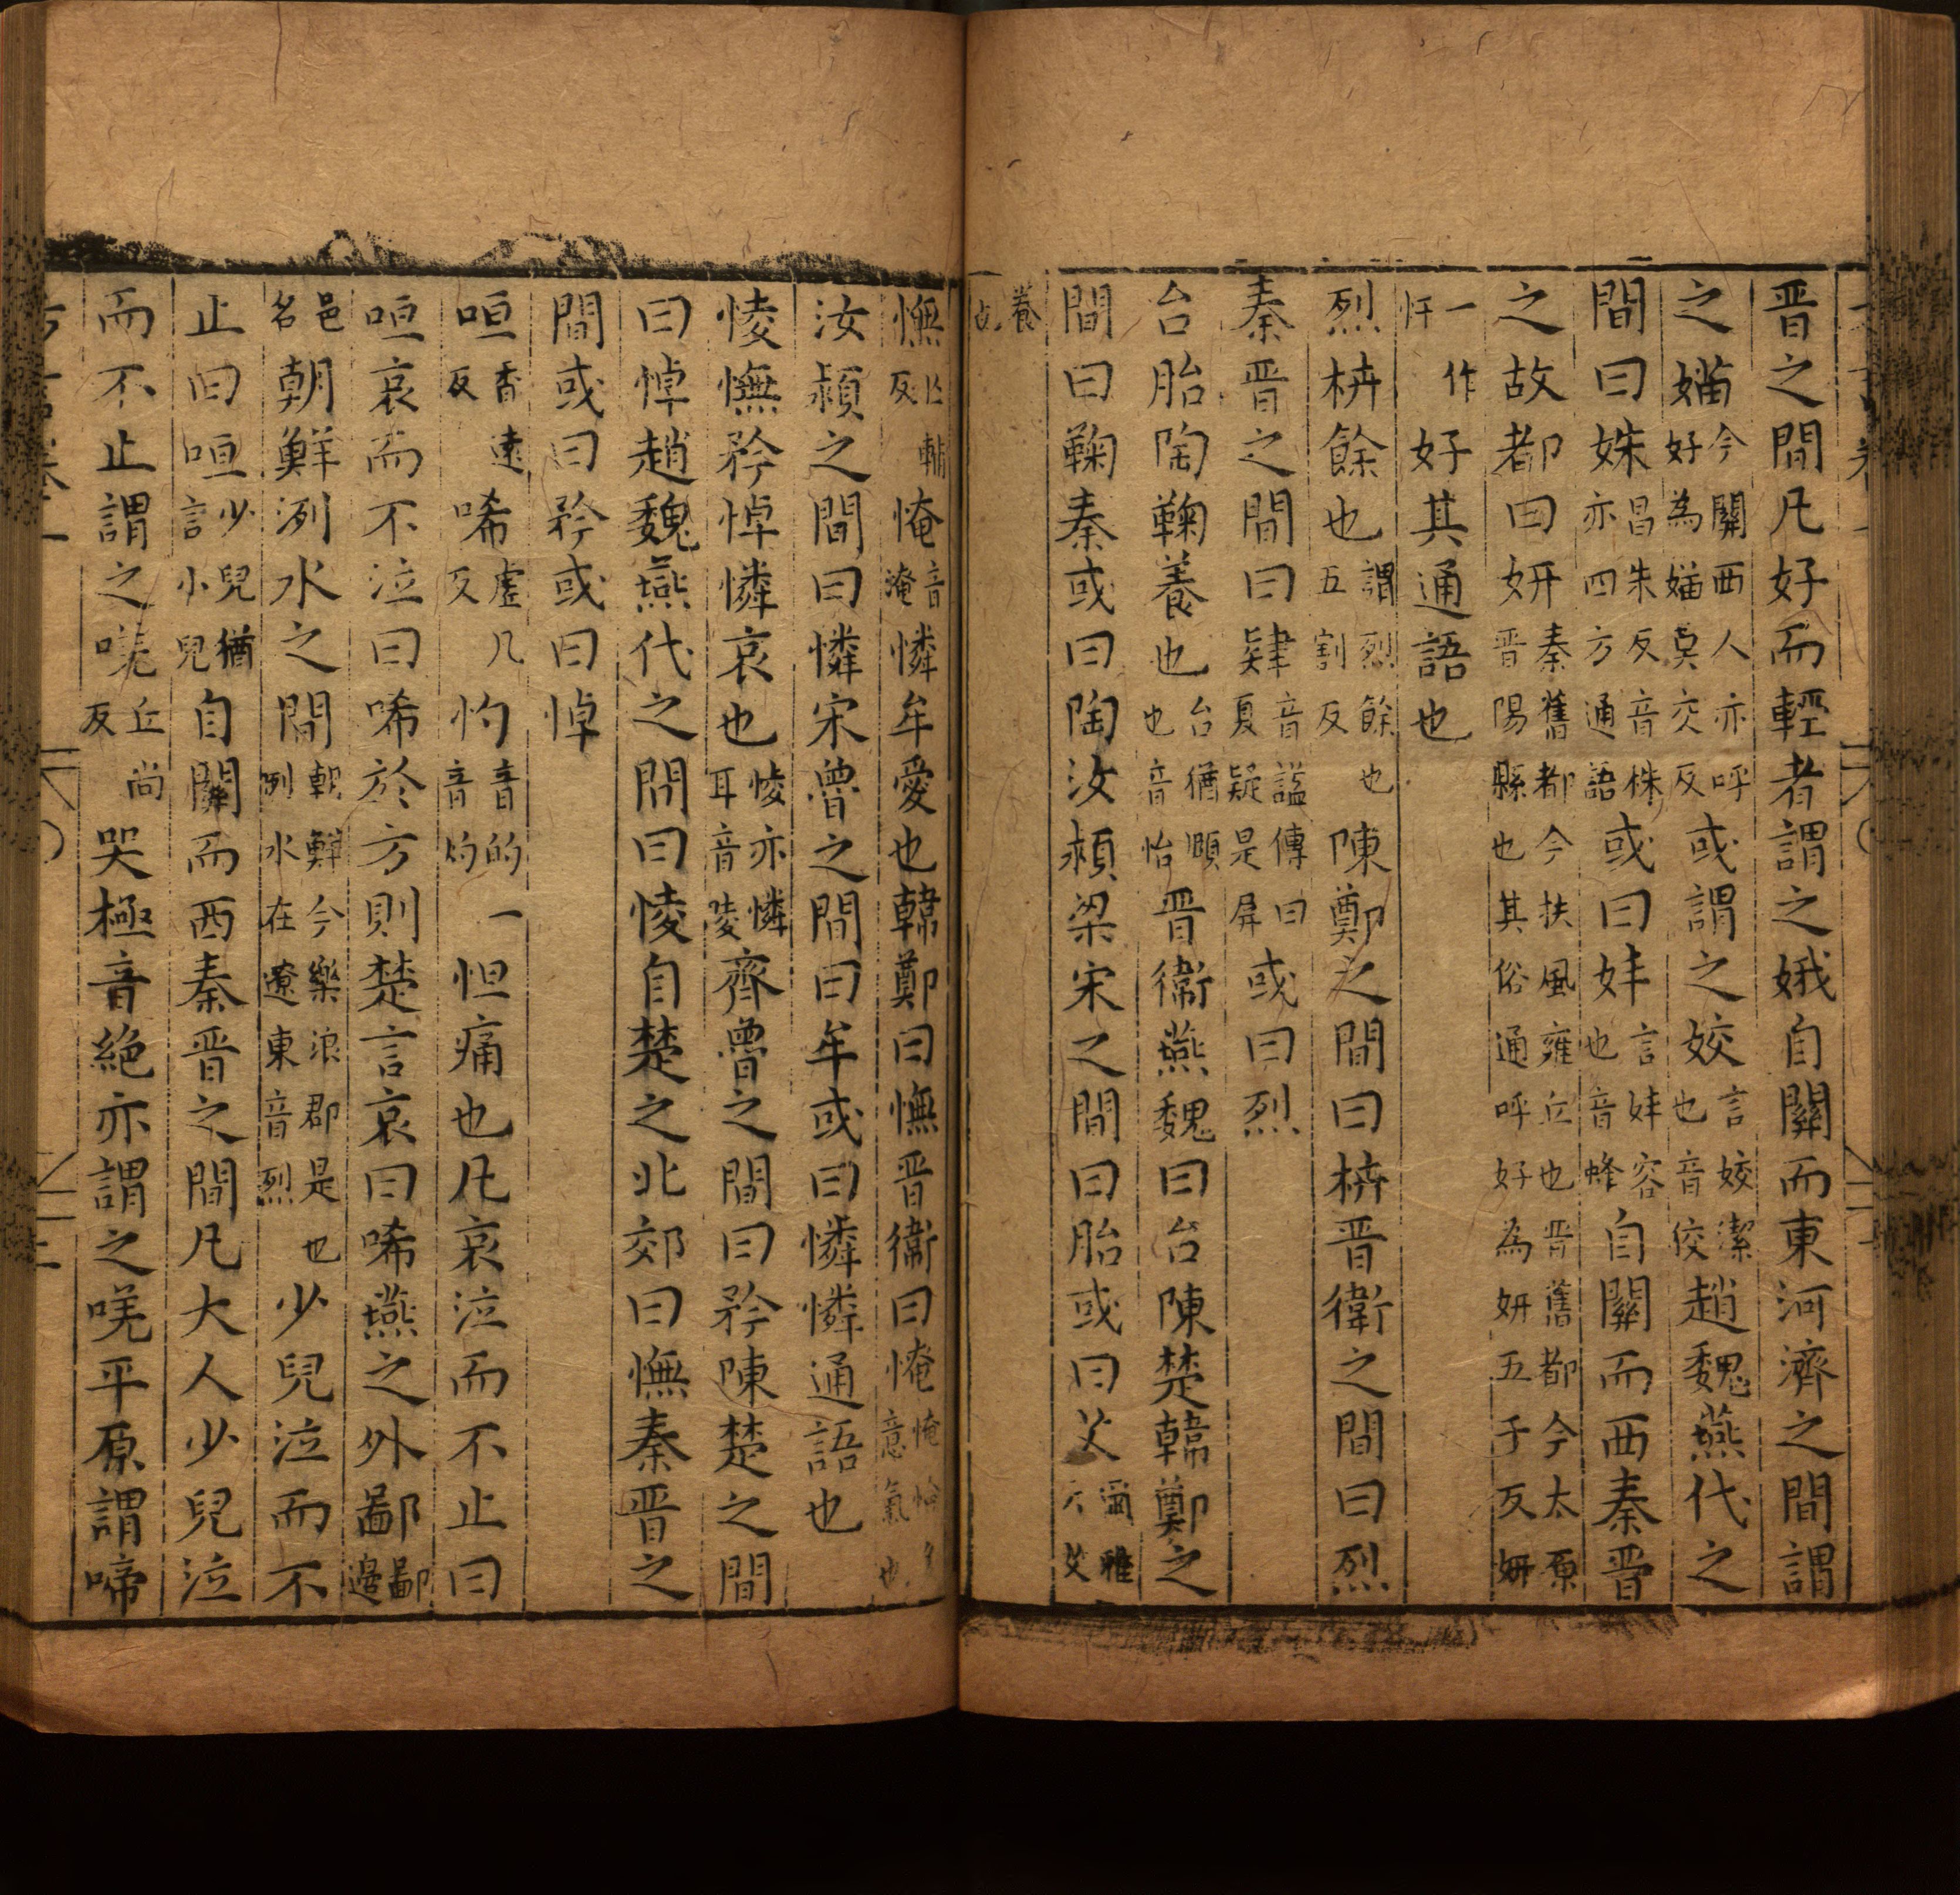 晋之間凡好而輕者謂之娥自關而東河濟之間謂
之媌今關西人亦呼好為媌莫交反或謂之姣言姣潔也音佼趙魏燕代之
間曰姝昌朱反音株亦四方通語或曰妦言妦容也音蜂自關而西秦晋
之故都曰妍秦舊都今扶風雍丘也晋舊都今太原晋陽縣也其俗通呼好為妍五千反妍
一作忓好其通語也
烈枿餘也謂烈餘也五割反陳鄭之間曰枿晋衛之間曰烈
秦晋之間曰肄音謚傳曰夏疑是屏或曰烈
台胎陶鞠養也台猶頤也音怡晋衛燕魏曰台陳楚韓鄭之
間曰鞠秦或曰陶汝潁梁宋之間曰胎或曰艾爾雅云艾
養也
憮亡輔反㤿音淹憐牟愛也韓鄭曰憮晋衛曰㤿㤿㤿多意氣也
汝潁之間曰憐宋魯之間曰牟或曰憐憐通語也
㥄憮矜悼憐哀也㥄亦憐耳音陵齊魯之間曰矜陳楚之間
曰悼趙魏燕代之間曰㥄自楚之北郊曰憮秦晋之
間或曰矜或曰悼
咺香遠反唏虛几反忉音的一音灼怛痛也凡哀泣而不止曰
咺哀而不泣曰唏於方則楚言哀曰唏燕之外鄙鄙邊
邑名朝鮮洌水之間朝鮮今樂浪郡是也列水在遼東音烈少兒泣而不
止曰咺少兒猶言小兒自關而西秦晋之間凡大人少兒泣
而不止謂之唴丘尚反哭極音絕亦謂之唴平原謂啼